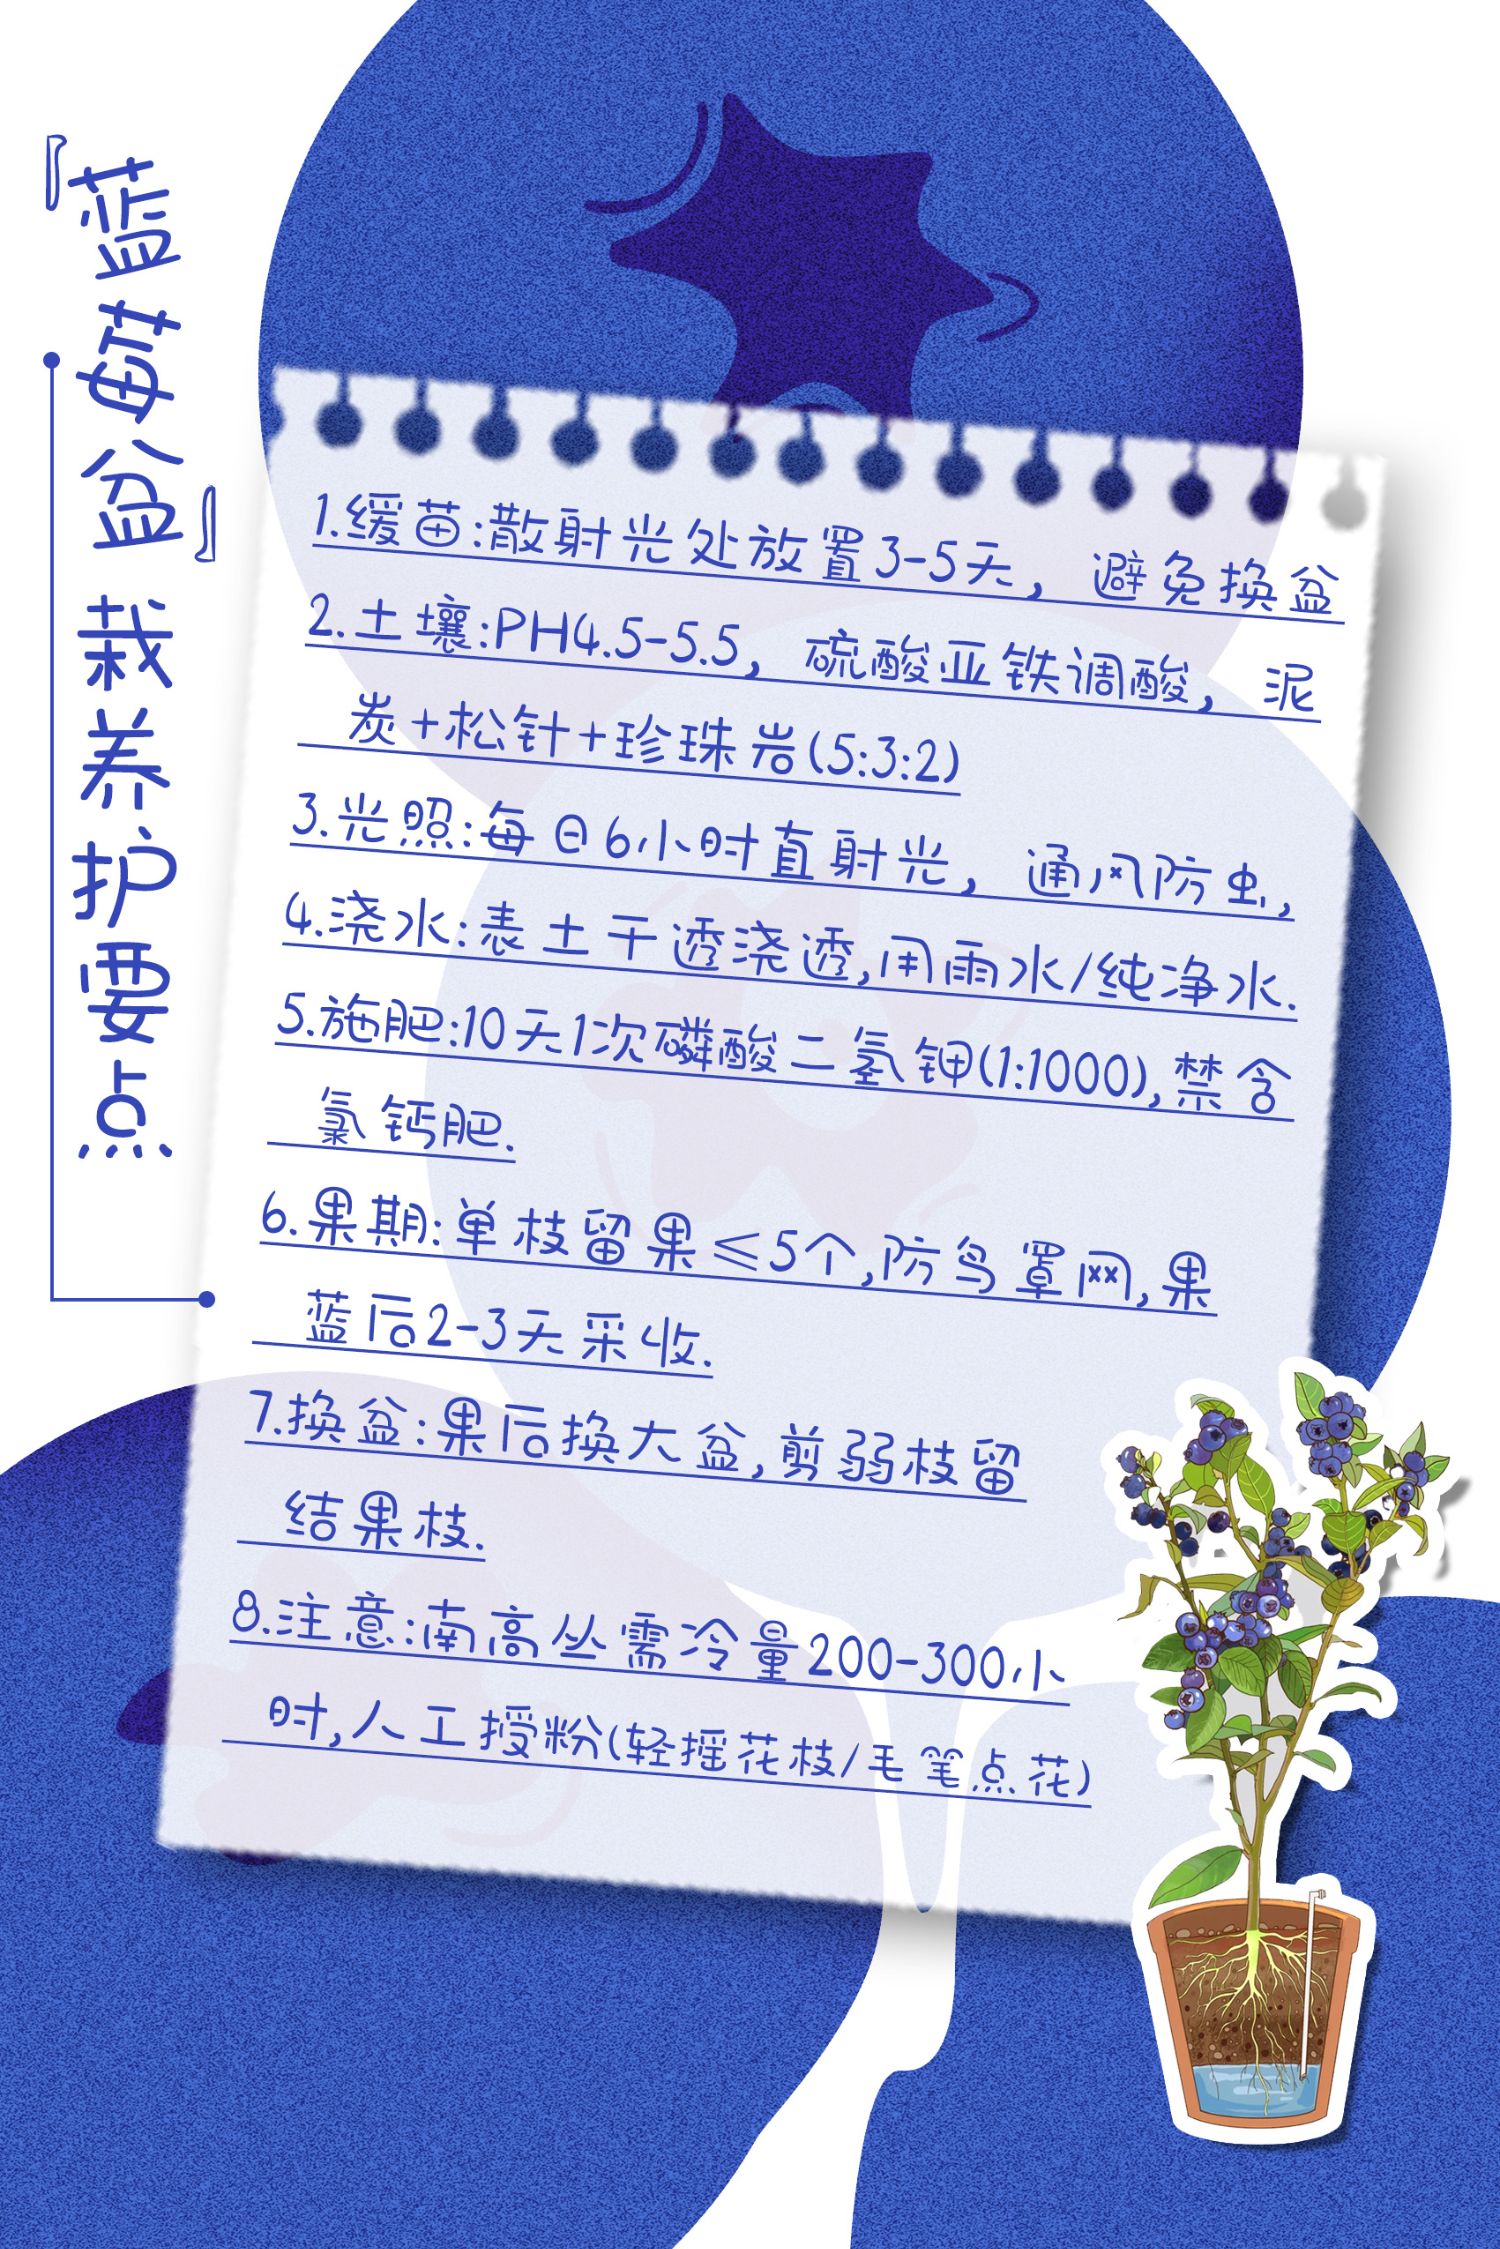 『蓝莓盆』栽养护要点
1.缓苗:散射光处放置3-5天，避免换盆
2.土壤:PH4.5-5.5，硫酸亚铁调酸，泥
炭+松针+珍珠岩(5:3:2)
3.光照:每日6小时直射光，通风防虫,
4.浇水:表土干透浇透,用雨水/纯净水.
5.施肥:10天1次磷酸二氢钾(1:1000),禁含
氯钙肥.
6.果期:单枝留果≤5个,防鸟罩网,果
蓝后2-3天采收.
7.换盆:果后换大盆,剪弱枝留
结果枝.
8.注意:南高丛需冷量200-300小
时,人工授粉(轻摇花枝/毛笔点花)